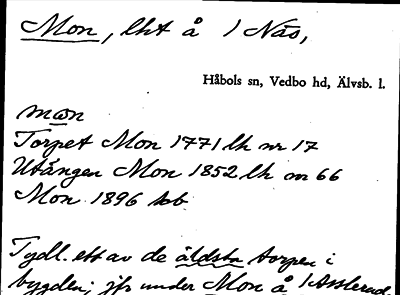 Mon, lht å 1 Näs,
Håbols sn, Vedbo hd, Älvsb. l.
mωn
Torpet Mon 1771 lh nr 17
Utängen Mon 1852 lh nr 66
Mon 1896
Tydl. ett av de äldsta torpen i
bygden; jfr under Mon å 1 Asslerud.